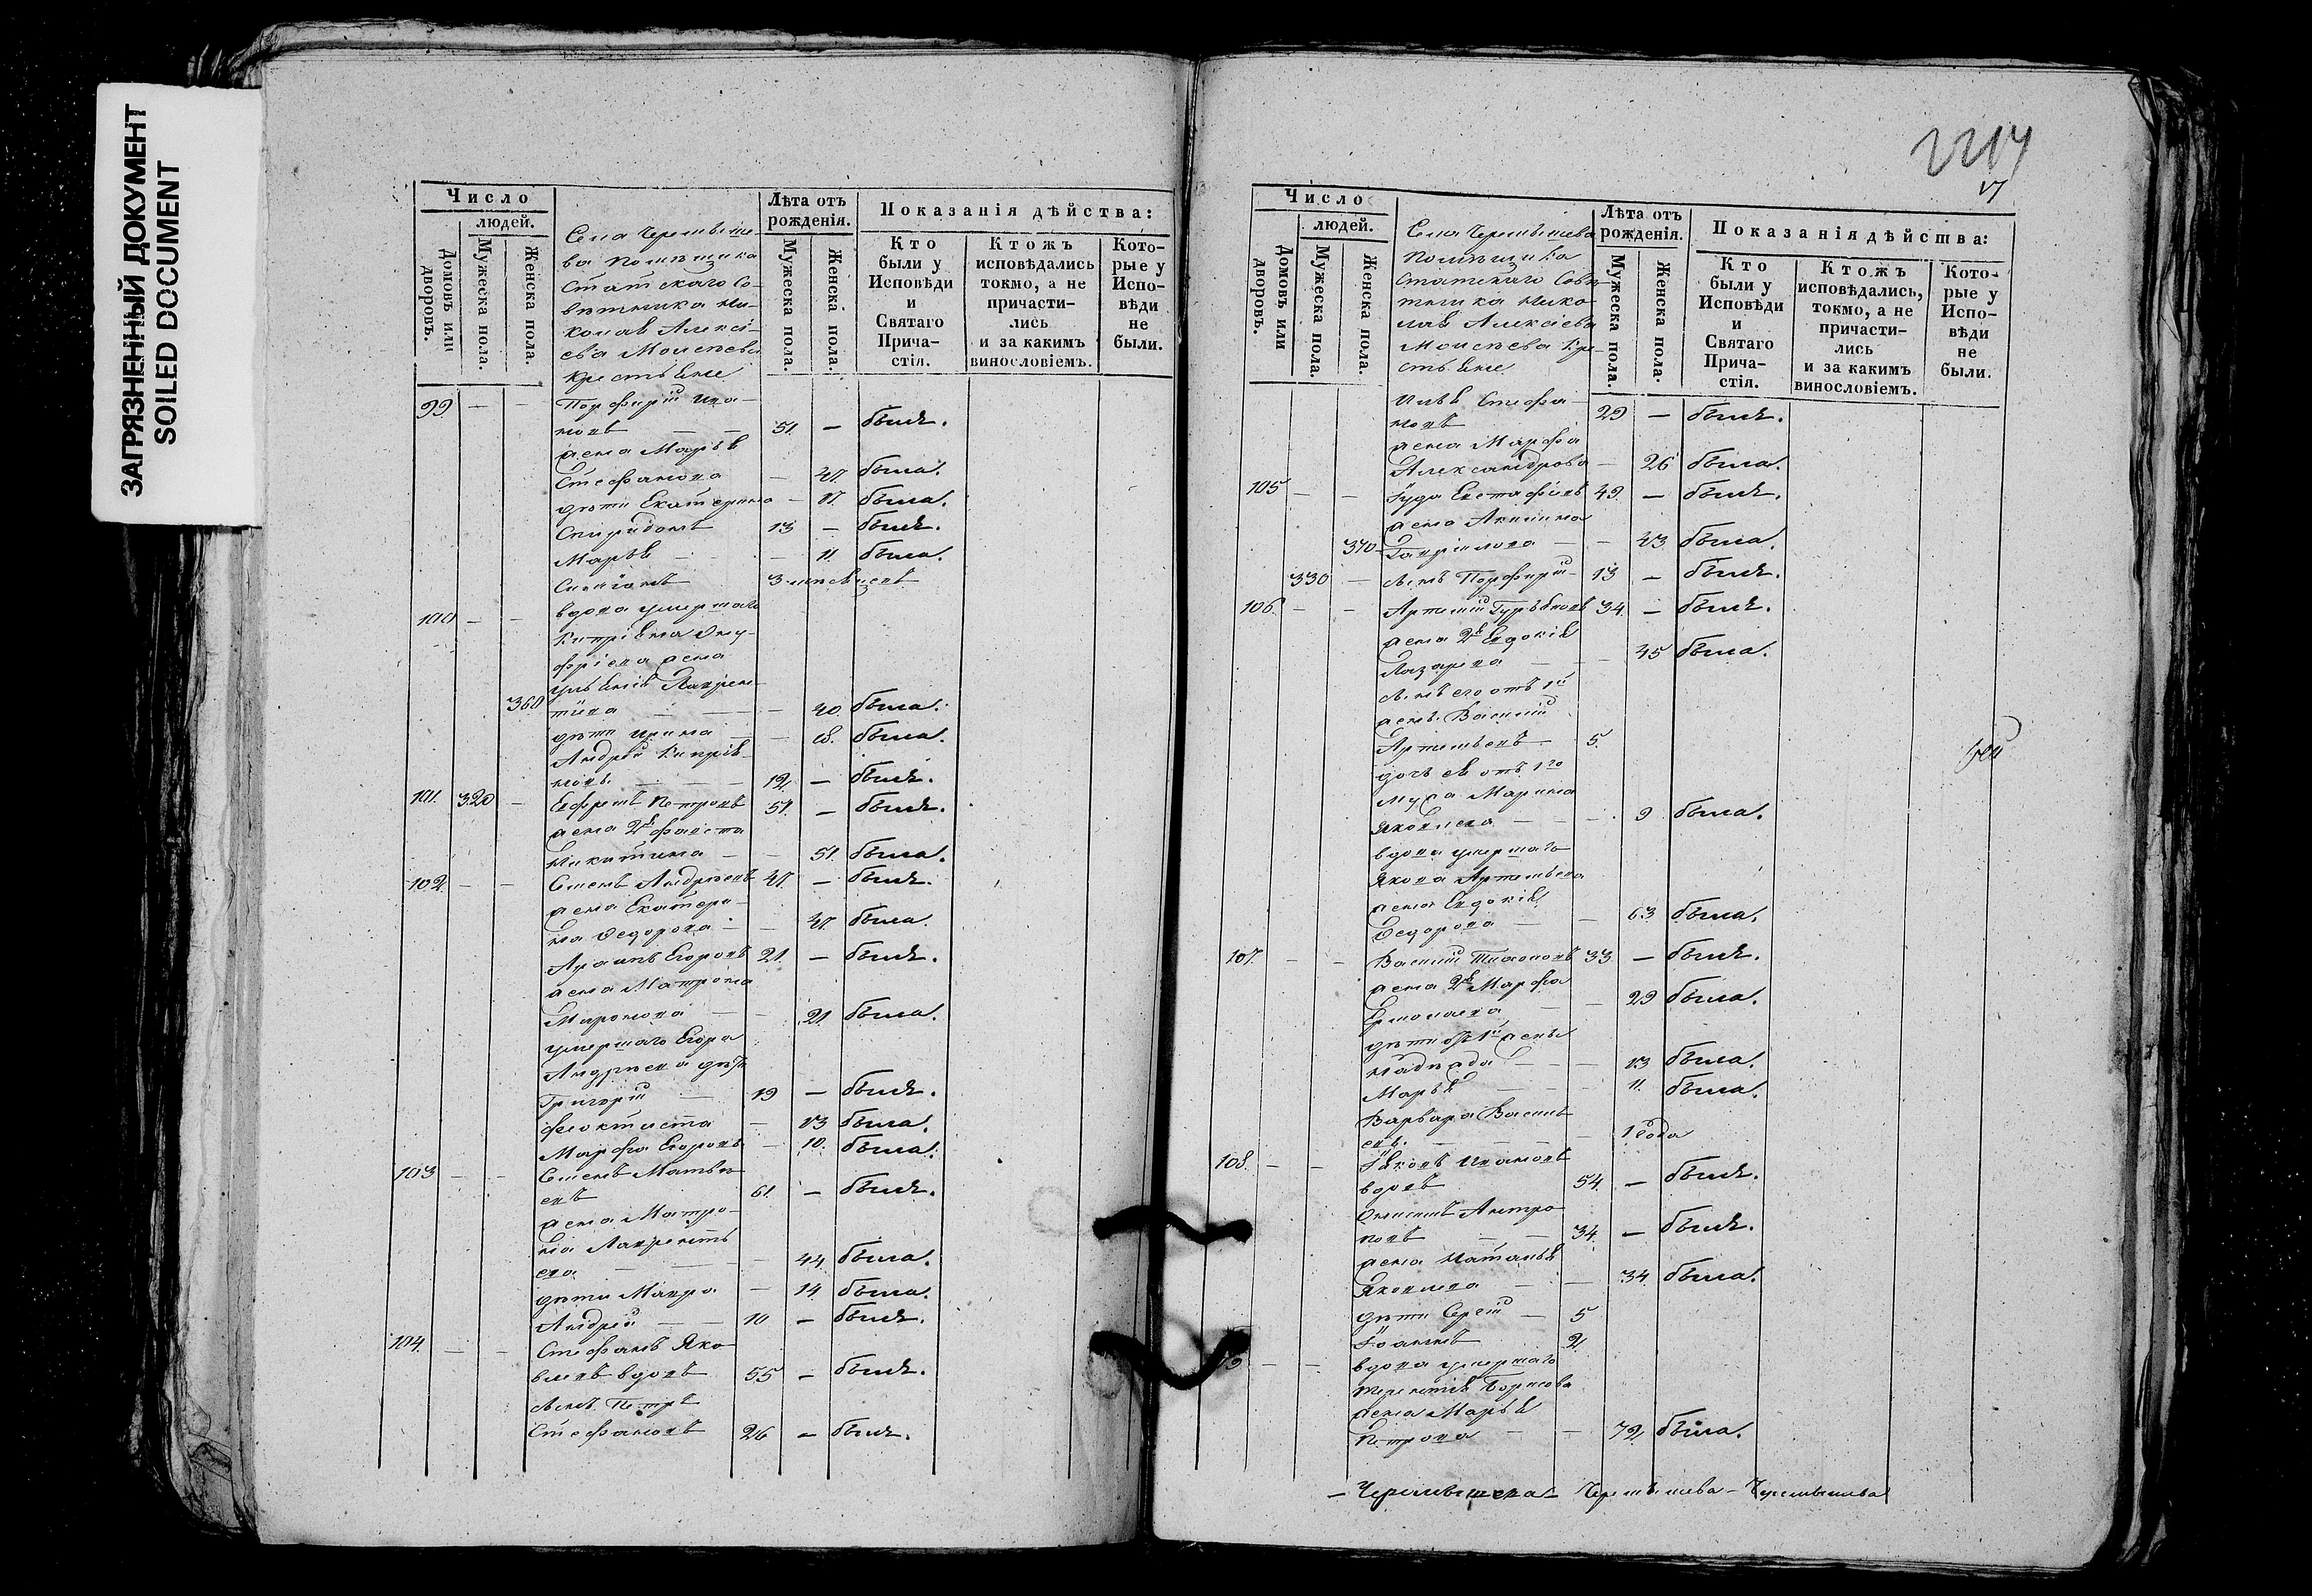 ЗАГРЯЗНЕННЫЙ ДОКУМЕНТ
SOILED DOCUMENT
Число
людей.
Домовъ или дворовъ.
Мужеска пола.
Женска пола.
Села Черемыше-
ва помѣщика
Статскаго Со-
вѣтника Ни-
колая Алексі-
ева
крестьяне
Лѣта отъ рожденія.
Мужеска пола.
Женска пола.
Показанія дѣйства:
Кто были у Исповѣди и Святаго Причастія.
Ктожъ исповѣдались токмо, а не причастились и за какимъ винословіемъ.
Которые у Исповѣди не были.
99 — — Порфирій Ива-
новъ — — 51. — былъ.
жена Марья
Стефанова — 47. была.
дѣти Екатерина — 17. была.
Спиридонъ 13 — былъ.
Марья — — 11. была.
3
100 — — вдова умершаго
Кипріяна Ону-
фріева жена
Ульянія Лаврен-
360 тіева — — 40. была.
дѣти Ирина — — 18. была.
Андрей Кипрія-
новъ — — 12. — былъ.
101. 320 — Ефремъ Петровъ 51. — былъ.
жена 2я Фавста
Никитина — — 51. была.
102. — — Семенъ Андреевъ 47. — былъ.
жена Екатери-
на Ѳедорова — — 47. была.
Егоровъ 21. — былъ.
жена Матрона
Миронова — — 21. была.
умершаго Егора
Андреева дѣти
Григорій — 19 — былъ.
Феоктиста — 13 была.
Марфа Егоров. — 10. была.
103 — — Семенъ Матвѣ-
евъ 61. — былъ.
жена Матро-
на Лавренть
ева — — 44. была.
дѣти Мавра — 14 была.
Андрей — — 10 — былъ.
104. — — Стефанъ Яко-
влевъ вдовъ 55 — былъ.
сынъ Петръ
Стефановъ 26 — былъ.
2214
17
Число
людей.
Домовъ или дворовъ.
Мужеска пола.
Женска пола.
Села Черемышева
помѣщика
Статскаго Совѣ-
тника Нико-
лая Алексіева
кре-
стьяне
Лѣта отъ рожденія.
Мужеска пола.
Женска пола.
Показанія дѣйства:
Кто были у Исповѣди и Святаго Причастія.
Ктожъ исповѣдались, токмо, а не причастились и за какимъ винословіемъ.
Которые у Исповѣди не были.
Илья Стефа-
новъ 29 — былъ.
жена Марфа
Александрова — 26 была.
105 — — Іуда Евстафіевъ 49. — былъ.
жена Акилина
370 Гаврилова — — 43 была.
330 — сынъ Порфирій 13 — былъ.
106 — — Артемій Гурьяновъ 34. — былъ.
жена 2я Евдокія
Лазарева — — 45 была.
сынъ его отъ 1й
жены Василій
Артемьевъ — 5.
дочь ея отъ 1го
мужа Марина
Яковлева — — 9 была.
вдова умершаго
Якова Артемьева
жена Евдокія
Ѳедорова — — 63 была.
107. — — Василій Тихоновъ 33 — былъ.
жена 2я Марфа
Ермолаева — — 29 была.
дѣти отъ 1й жены
— — 13 была.
Марья — — 11. была.
Варвара Василь
ева. — — 1 года
108. — — Іяковъ Ивановъ
вдовъ 54. — былъ.
Онисимъ Антро
повъ — — 34. — былъ.
жена Наталья
Яковлева — — 34. была.
дѣти Сергій — 5
Іоаннъ 2
9 — — вдова умершаго
Терентія Борисова
жена Марья
Петрова — — 72. была.
— Черемышева — Черемышева — Черемышева